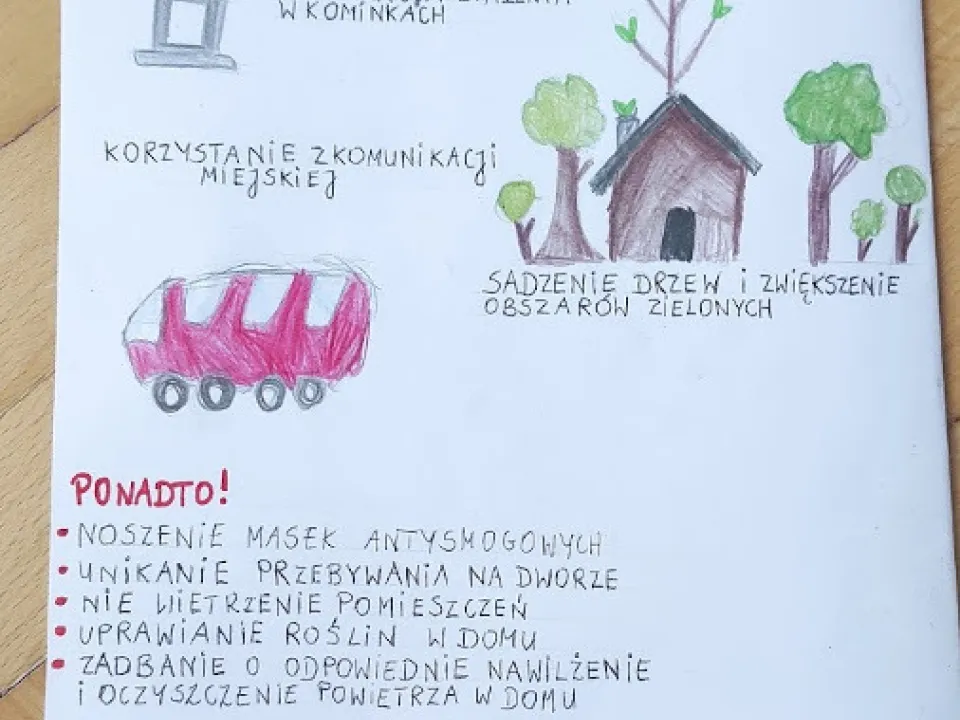 W KOMINKACH
KORZYSTANIE Z KOMUNIKACJI
MIEJSKIEJ
SADZENIE DRZEW i ZWIĘKSZENIE
OBSZARÓW ZIELONYCH
PONADTO!
• NOSZENIE MASEK ANTYSMOGOWYCH
• UNIKANIE PRZEBYWANIA NA DWORZE
• NIE WIETRZENIE POMIESZCZEŃ
• UPRAWIANIE ROŚLIN W DOMU
• ZADBANIE O ODPOWIEDNIE NAWILŻENIE
i OCZYSZCZENIE POWIETRZA W DOMU